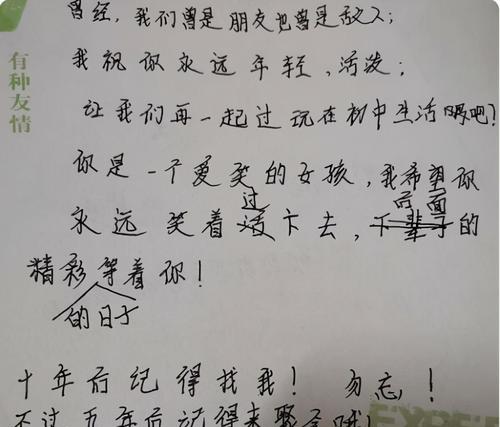 有种友情
曾经，我们曾是朋友也曾是敌人；
我祝你永远年轻，活泼；
让我们再一起过 玩在初中生活嗎吧？
你是一个爱笑的女孩，我希望你
过 后面
永远笑着活下去，下辈子的
精彩等着你！
的日子
十年后记得找我！ 勿忘！
不过五年后记得来聚会哦！